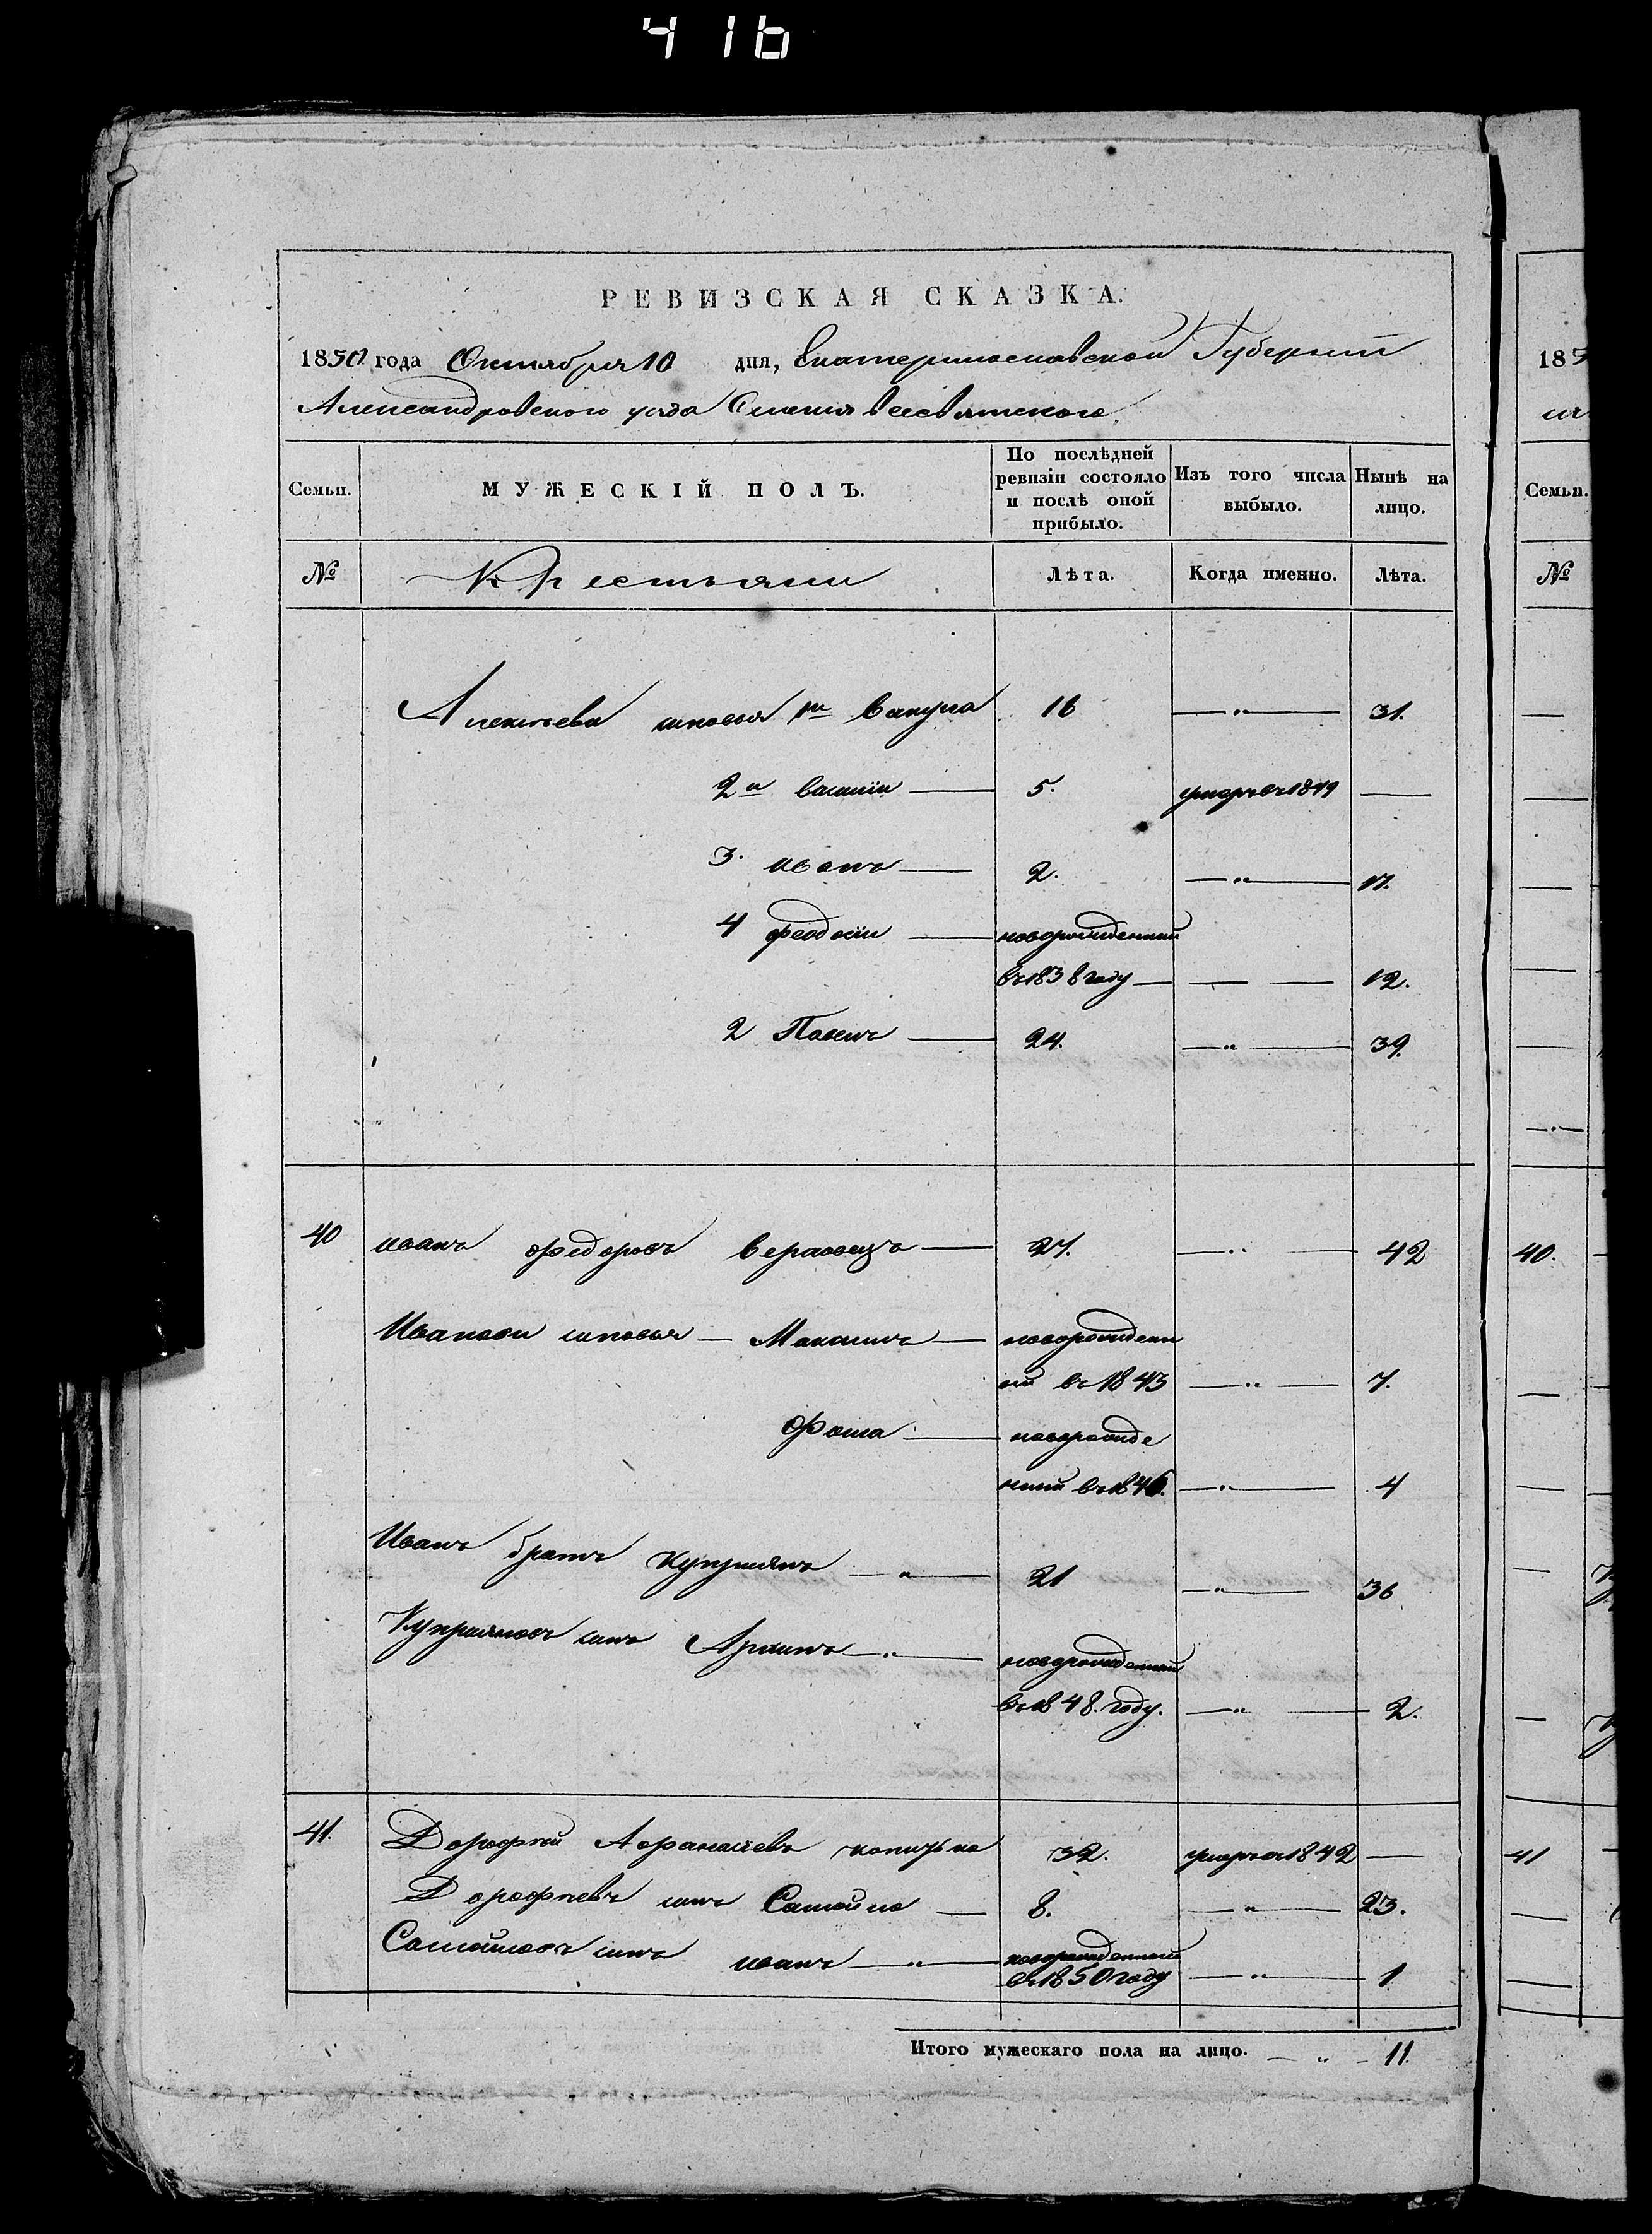 416
РЕВИЗСКАЯ СКАЗКА.
1850 года Октября 10 дня, Екатеринославской Губернии
Александровского уезда Имения всесвятского
Семьи. МУЖЕСКІЙ ПОЛЪ. По послѣдней ревизіи состояло и послѣ оной прибыло. Изъ того числа выбыло. Нынѣ на лицо.
№ Крестьяни Лѣта. Когда именно. Лѣта.
Алексѣева сыновья 1й Вакула 16 —"— 31.
2й Василій — 5. умеръ въ 1849 —
3. иванъ — 2. —"— 17.
4 феодосій — новорожденный
въ 1838 году — — — 12.
2 Павелъ — 24. —"— 39.
40 иванъ федоровъ — 27. —"— 42
Ивановы сыновья — Максимъ — новорожденн
ый въ 1843 —"— 7.
Фома — новорожде
нный въ 1846. —"— 4
Иванъ братъ куприянъ —"— 21 —"— 36
Куприяновъ сынъ Архипъ —"— новорожденный
въ 1848. году. —"— 2.
41. Дорофей Афанасіевъ 32. умеръ въ 1842 —
Дорофѣевъ сынъ Самойло — 8. —"— 23.
Самойловъ сынъ иванъ —"— новорожденный
въ 1850 году —"— 1
Итого мужескаго пола на лицо. —"— 11.
185
Семьи.
№
40.
41